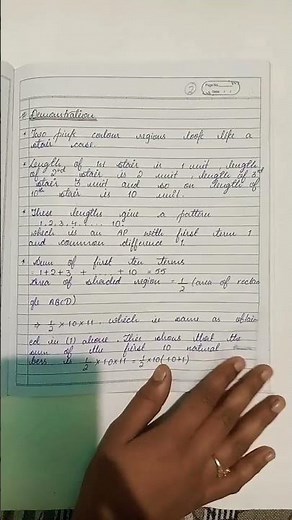 2
Page No.
Date
Demonstration
• Two pink colour regions look like a
stair case.
• Length of 1st stair is 1 unit, length
of 2nd stair is 2 unit, length of 3rd
stair 3 unit and so on length of
10th stair is 10 unit.
• These lengths give a pattern
1, 2, 3, 4, .... 10
which is an AP with first term 1
and common difference 1.
• Sum of first ten terms
= 1+2+3+ ...... +10 = 55
Area of shaded region = 1/2 (area of rectan
gle ABCD)
⇒ 1/2 × 10 × 11 which is same as obtain
ed in (1) above. This shows that the
sum of the first 10 natural
bers is 1/2 × 10 × 11 = 1/2 × 10(10+1)